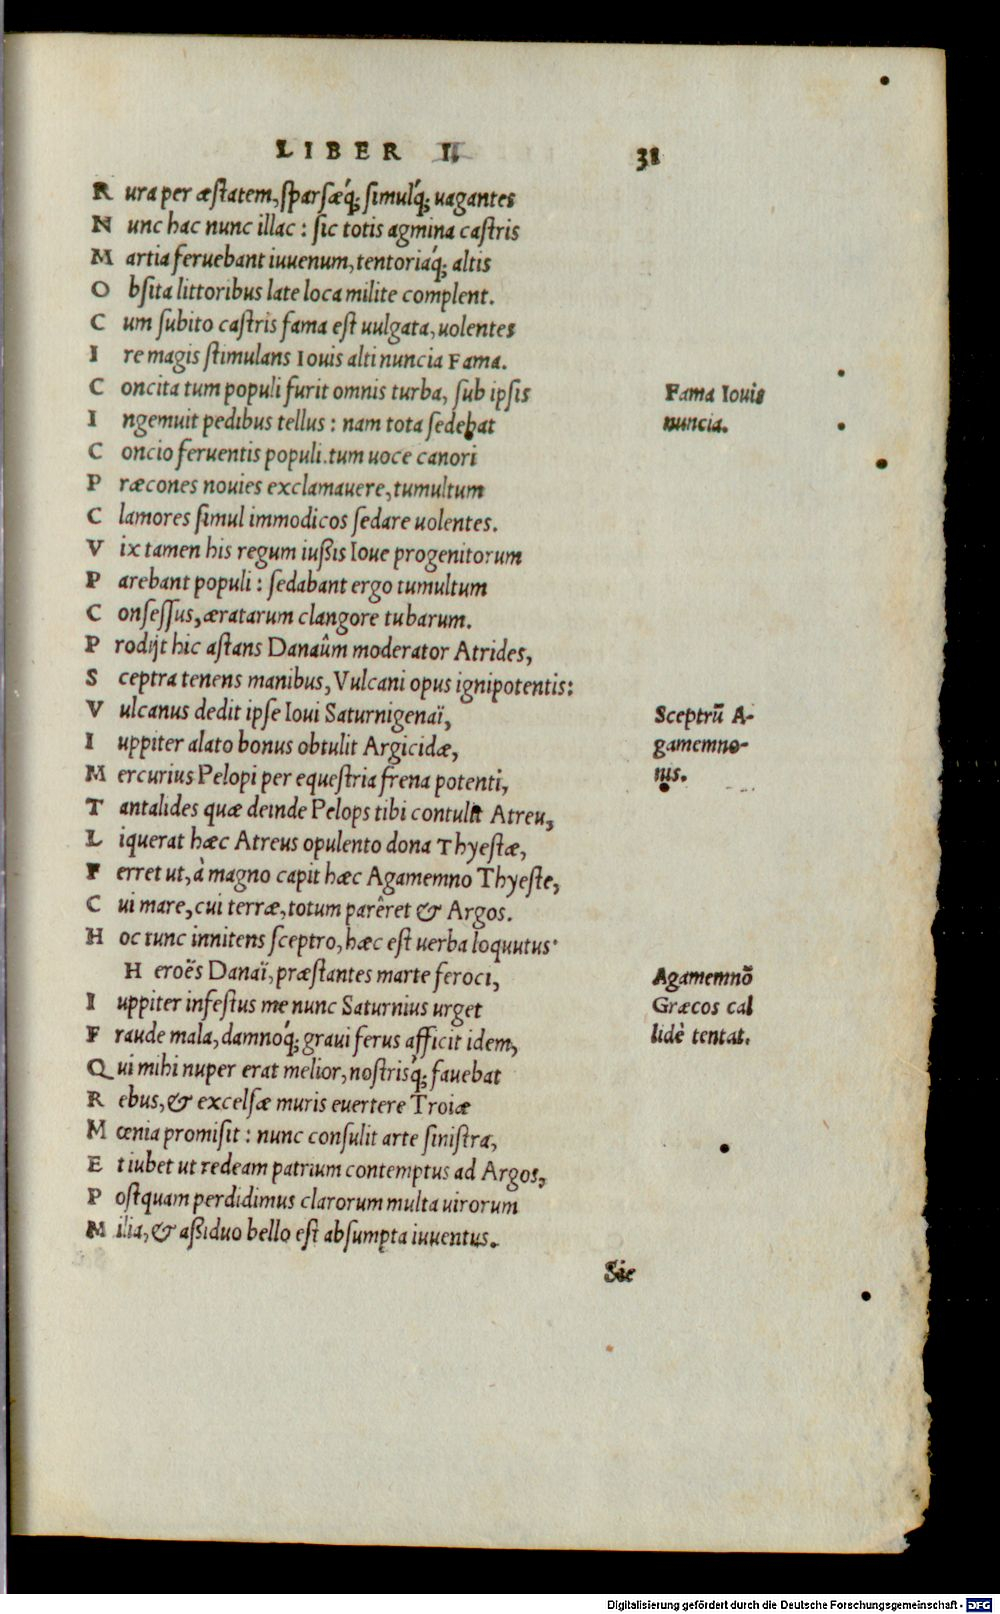 LIBER II. 31
R ura per æstatem, sparsæq́; simulq́; uagantes
N unc hac nunc illac : sic totis agmina castris
M artia feruebant iuuenum, tentoriaq́; altis
O bsita littoribus late loca milite complent.
C um subito castris fama est uulgata, uolentes
I re magis stimulans Iouis alti nuncia Fama.
C oncita tum populi furit omnis turba, sub ipsis
Fama Iouis
I ngemuit pedibus tellus : nam tota sedebat
nuncia.
C oncio feruentis populi. tum uoce canori
P ræcones nouies exclamauere, tumultum
C lamores simul immodicos sedare uolentes.
V ix tamen his regum iußis Ioue progenitorum
P arebant populi : sedabant ergo tumultum
C onsessus, æratarum clangore tubarum.
P rodijt hic astans Danaûm moderator Atrides,
S ceptra tenens manibus, Vulcani opus ignipotentis:
V ulcanus dedit ipse Ioui Saturnigenaï,
Sceptrũ A-
I uppiter alato bonus obtulit Argicidæ,
gamemno-
M ercurius Pelopi per equestria frena potenti,
nis.
T antalides quæ deinde Pelops tibi contulit Atreu,
L iquerat hæc Atreus opulento dona Thyestæ,
F erret ut, à magno capit hæc Agamemno Thyeste,
C ui mare, cui terræ, totum parêret & Argos.
H oc tunc innitens sceptro, hæc est uerba loquutus·
H eroës Danaï, præstantes marte feroci,
Agamemnõ
I uppiter infestus me nunc Saturnius urget
Græcos cal
F raude mala, damnoq́; graui ferus afficit idem,
lidè tentat.
Q ui mihi nuper erat melior, nostrisq́; fauebat
R ebus, & excelsæ muris euertere Troiæ
M œnia promisit : nunc consulit arte sinistra,
E t iubet ut redeam patrium contemptus ad Argos,
P ostquam perdidimus clarorum multa uirorum
M ilia, & aßiduo bello est absumpta iuuentus.
Sic
Digitalisierung gefördert durch die Deutsche Forschungsgemeinschaft - DFG